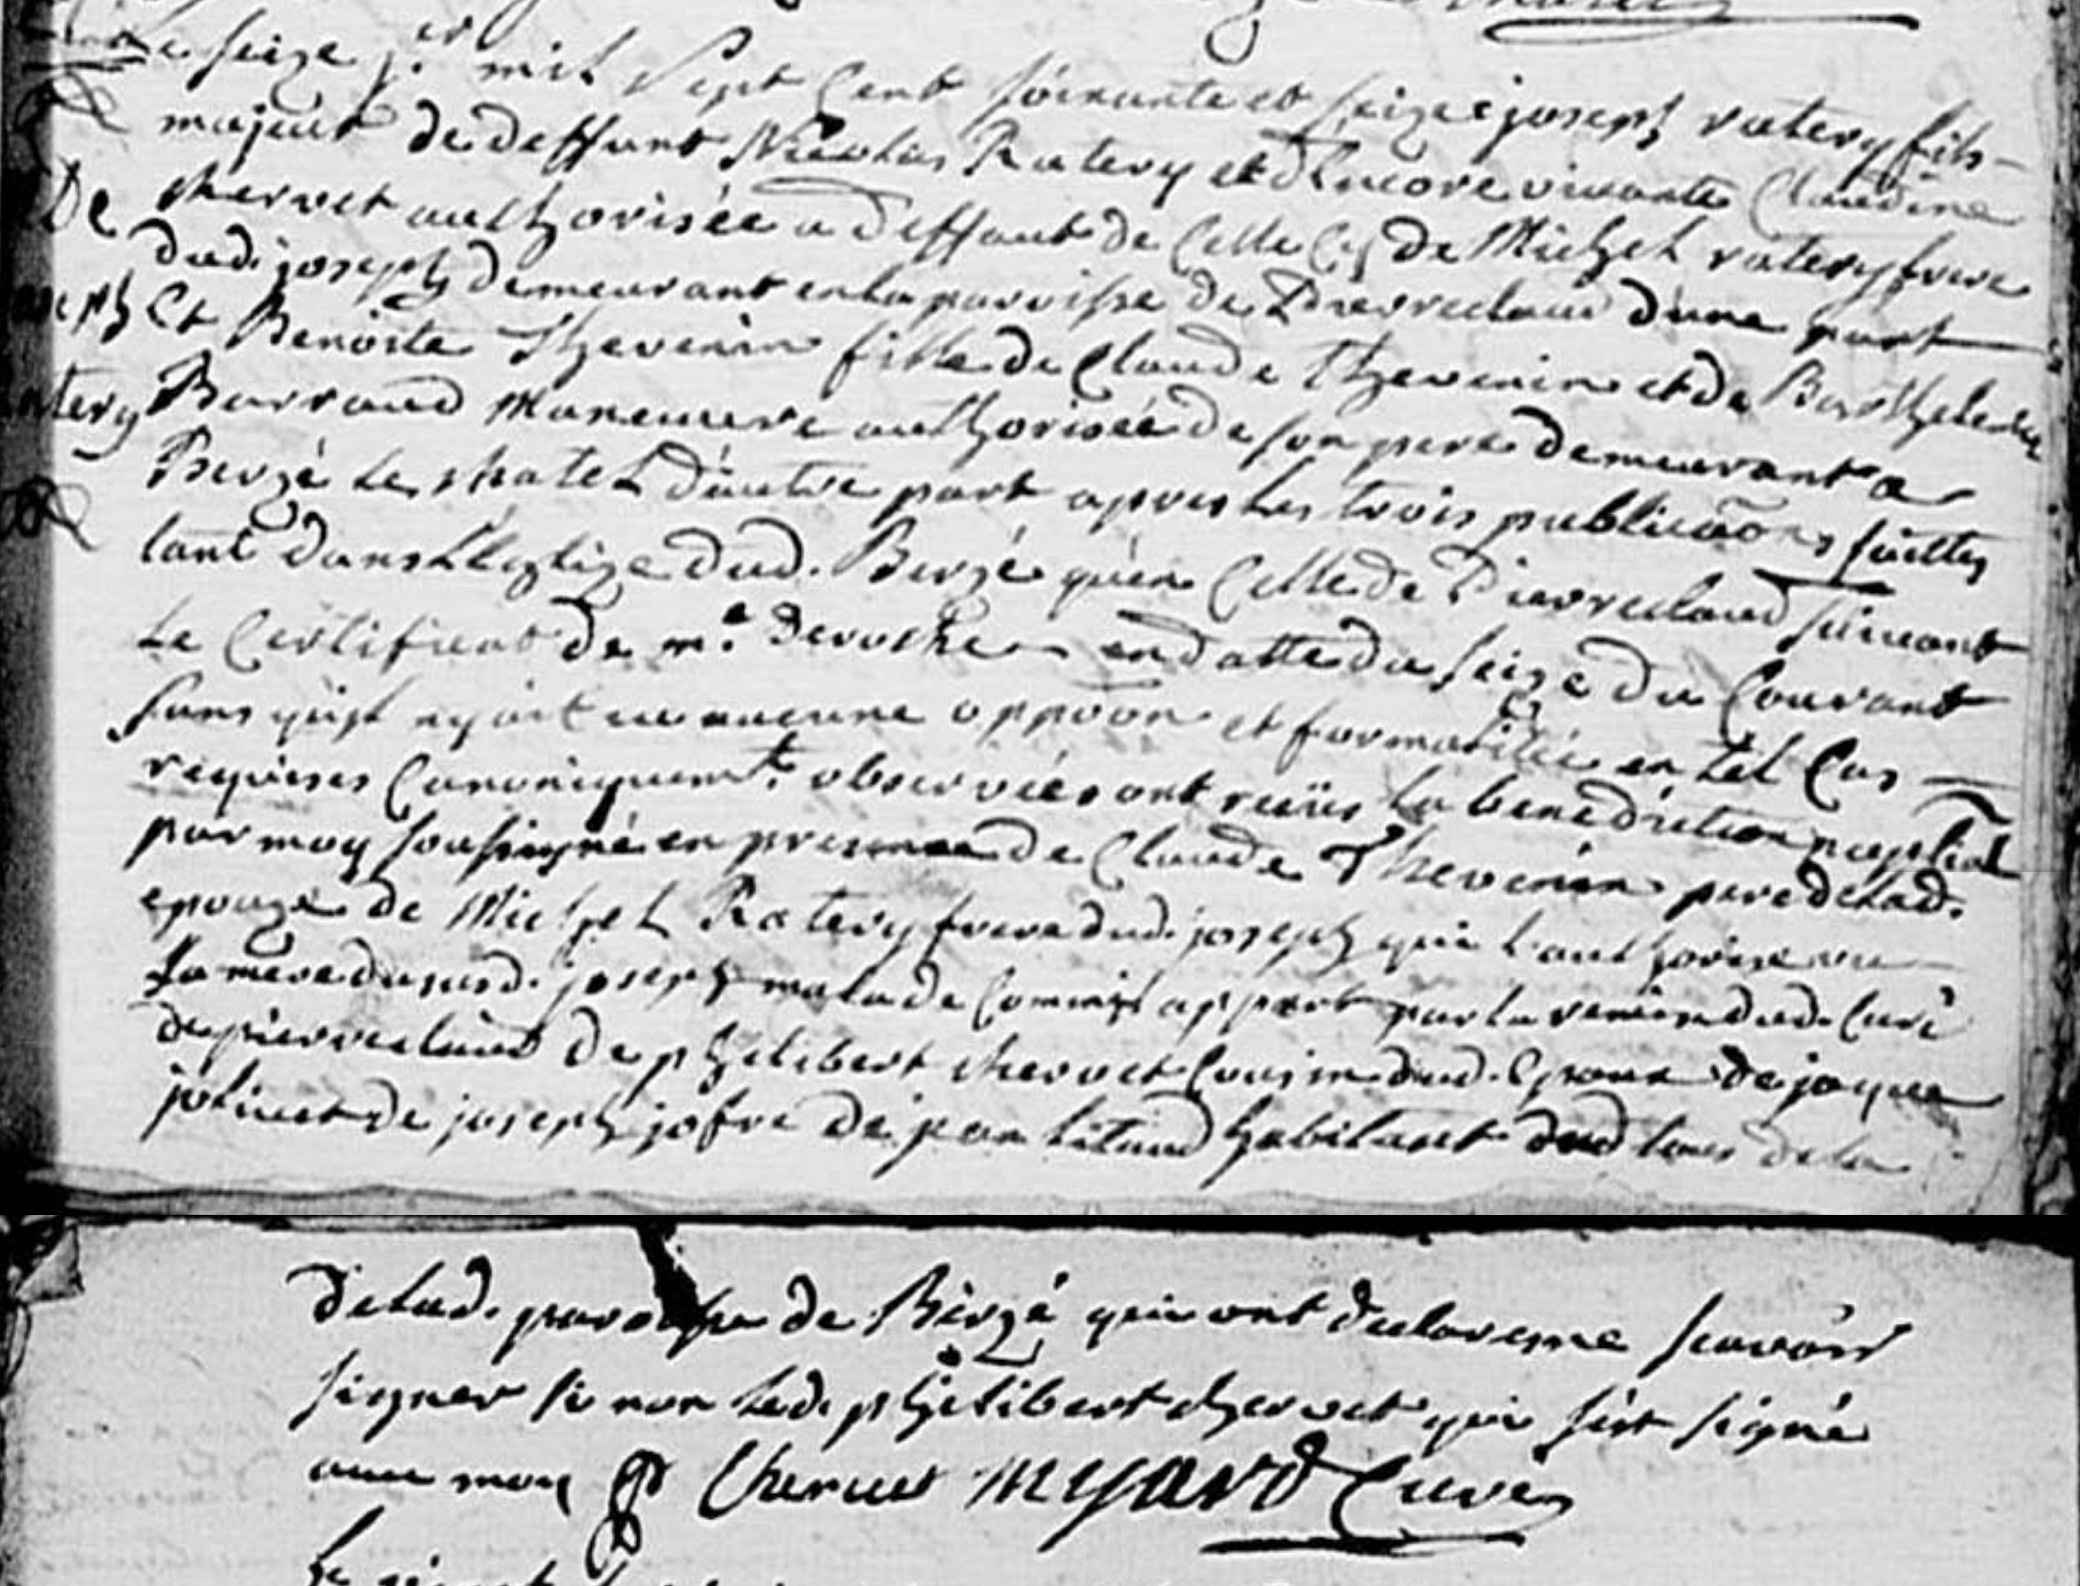 Le seize j.er mil Sept Cent soixante et seize joseph ratery fils
majeur de deffunt Nicolas Ratery et d'Encore vivante Claudine
De
Chervet authorisée a deffaut de Celle Cy de Michel ratery frere
dud. joseph demeurant en la paroisse de Pierreclaud d'une part
joseph
Et Benoite Thevenin fille de Claude Thevenin et de Barthelemie
ratery
Barraud Manœuvre authorisée de son pere demeurant a
Berzé Le Chatel d'autre part apres les trois publicaõns faittes
tant dans L'Eglize dud. Berzé qu'en Celle de Pierreclaud suivant
Le Certificat de m.e Deroche en datte du seize du Courant
sans qu'il n'y ait eu aucune oppõon et formalités en tel Cas
requises Canoniquem.t observées ont reçûs la benediction nuptial
par moy soussigné en presence de Claude Thevenin pere de lad.
epouze de Michel Ratery frere dud. joseph qui l'authorise vu
La mere du susd. joseph malade Comme il appert par la remise dud. Curé
de pierreclaud de phelibert Chervet Cousin dud. Epoux de jaque
jolivet de joseph jofre de jean Litaud habitant dud lous de la
de Lad. paroisse de Berzé qui ont declaré ne scavoir
signer si non Led. phelibert chervet qui s'est signé
avec moy P Chervet MYARD Curé